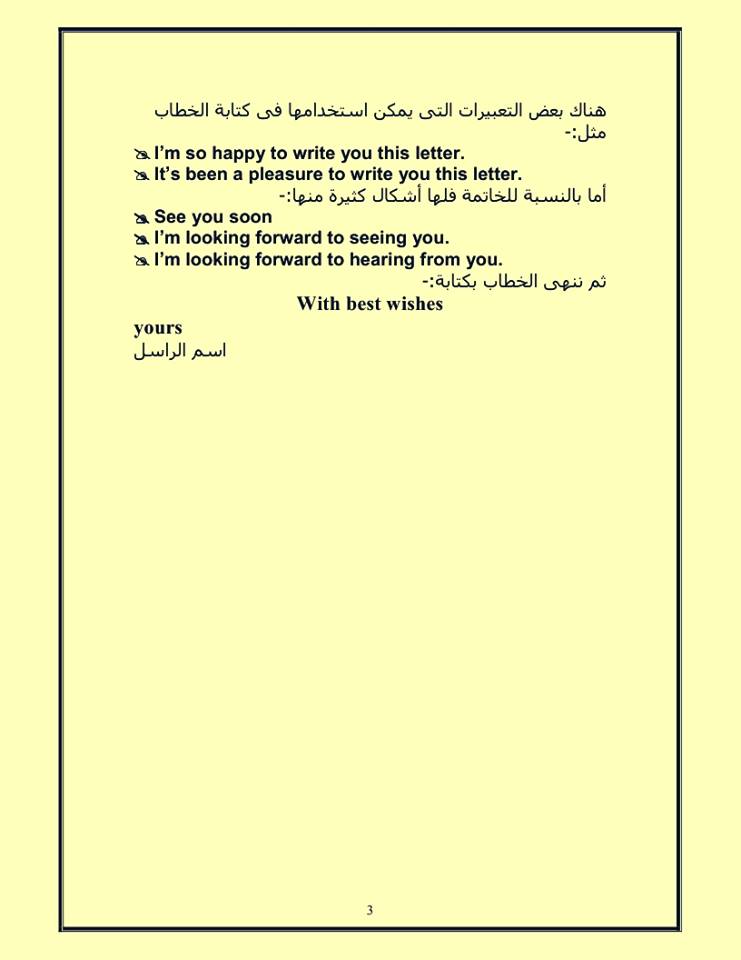 هناك بعض التعبيرات التى يمكن استخدامها فى كتابة الخطاب
مثل:-
I’m so happy to write you this letter.
It’s been a pleasure to write you this letter.
أما بالنسبة للخاتمة فلها أشكال كثيرة منها:-
See you soon
I’m looking forward to seeing you.
I’m looking forward to hearing from you.
ثم ننهى الخطاب بكتابة:-
With best wishes
yours
اسم الراسل
3